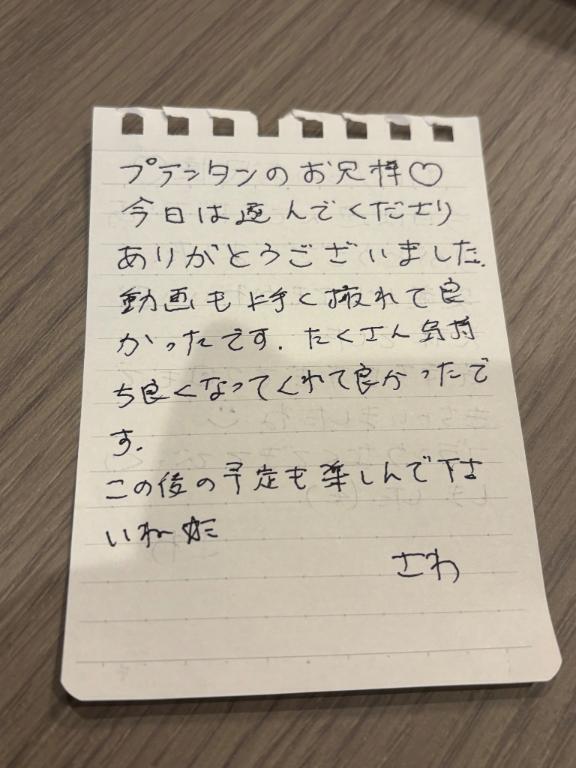 プテンタンのお兄様♡
今日は選んでくださり
ありがとうございました.
動画も上手く撮れて良
かったです. たくさん気持
ち良くなってくれて良かったで
す.
この後の予定も楽しんで下さ
いね
さわ